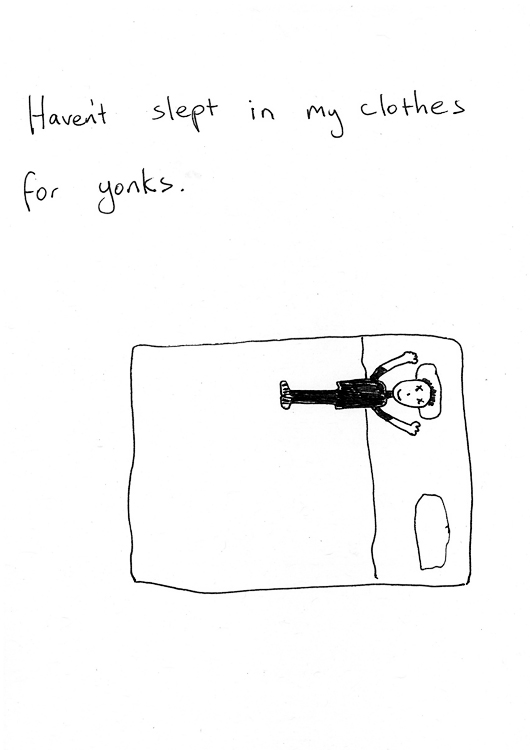 Haven't slept in my clothes
for yonks.